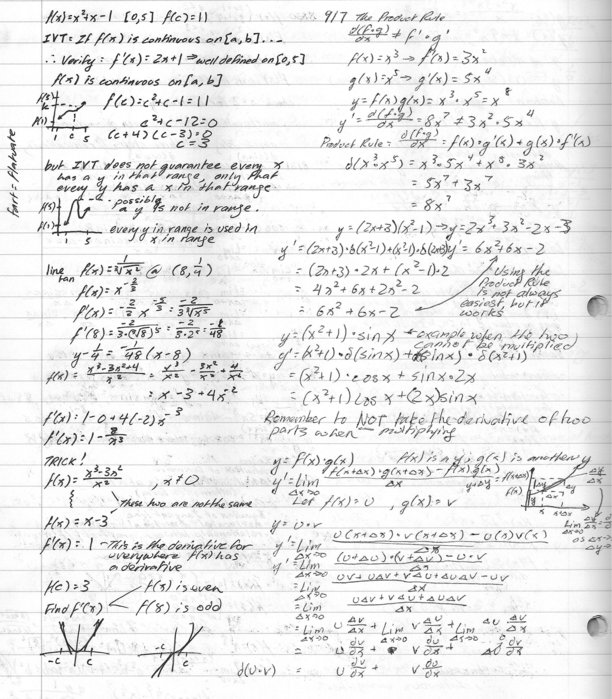 f(x)=x²+x-1 [0,5] f(c)=11
IVT: If f(x) is continuous on [a,b]...
∴ Verify: f'(x)=2x+1 → well defined on [0,5]
f(x) is continuous on [a,b]
f(c)=c²+c-1=11
c²+c-12=0
(c+4)(c-3)=0
c=3
Fart = Flatuate
but IVT does not guarantee every x
has a y in that range, only that
every y has a x in that range.
possible
a y is not in range.
every y in range is used in
x in range
line tan f(x)=1/∛x² @ (8,1/4)
f(x)=x^(-2/3)
f'(x)=-2/3 x^(-5/3) = -2/(3∛x⁵)
f'(8)=-2/(3·(∛8)⁵) = -2/(3·2⁵) = -1/48
y-1/4=-1/48(x-8)
f(x)=(x³-3x²+4)/x² = x³/x² - 3x²/x² + 4/x²
= x-3+4x⁻²
f'(x)=1-0+4(-2)x⁻³
f'(x)=1-8/x³
TRICK!
f(x)=(x³-3x²)/x², x≠0
These two are not the same
f(x)=x-3
f'(x)=1 - This is the derivative for
everywhere f(x) has
a derivative
f(c)=3
f(x) is even
Find f'(x)
f(x) is odd
-c c
-c c
9/7 The Product Rule
d(f·g)/dx ≠ f'·g'
f(x)=x³ → f'(x)=3x²
g(x)=x⁵ → g'(x)=5x⁴
y=f(x)g(x)=x³·x⁵=x⁸
y'=d(f·g)/dx=8x⁷≠3x²·5x⁴
Product Rule = d(f·g)/dx = f(x)·g'(x)+g(x)·f'(x)
d(x³·x⁵)=x³·5x⁴+x⁵·3x²
=5x⁷+3x⁷
=8x⁷
y=(2x+3)(x²-1) → y=2x³+3x²-2x-3
y'=(2x+3)·d(x²-1)+(x²-1)·d(2x+3) y'=6x²+6x-2
=(2x+3)·2x+(x²-1)·2
=4x²+6x+2x²-2
=6x²+6x-2
Using the
Product Rule
is not always
easiest, but it
works
y=(x²+1)·sinx ← example when the two
cannot be multiplied
y'=(x²+1)·d(sinx)+(sinx)·d(x²+1)
=(x²+1)·cosx+sinx·2x
=(x²+1)cosx+(2x)sinx
Remember to NOT take the derivative of two
parts when multiplying
y=f(x)·g(x) f(x) is a y; g(x) is another y
y'=Lim Δx→0 (f(x+Δx)·g(x+Δx)-f(x)g(x))/Δx
Let f(x)=u, g(x)=v
y=u·v
y'=Lim Δx→0 (u(x+Δx)·v(x+Δx)-u(x)v(x))/Δx
y'=Lim Δx→0 ((u+Δu)·(v+Δv)-u·v)/Δx
=Lim Δx→0 (uv+uΔv+vΔu+ΔuΔv-uv)/Δx
=Lim Δx→0 (uΔv+vΔu+ΔuΔv)/Δx
=Lim Δx→0 u Δv/Δx + Lim Δx→0 v Δu/Δx + Lim Δx→0 Δu Δv/Δx
= u dv/dx + v du/dx + Δu dv/dx
d(u·v) = u dv/dx + v du/dx